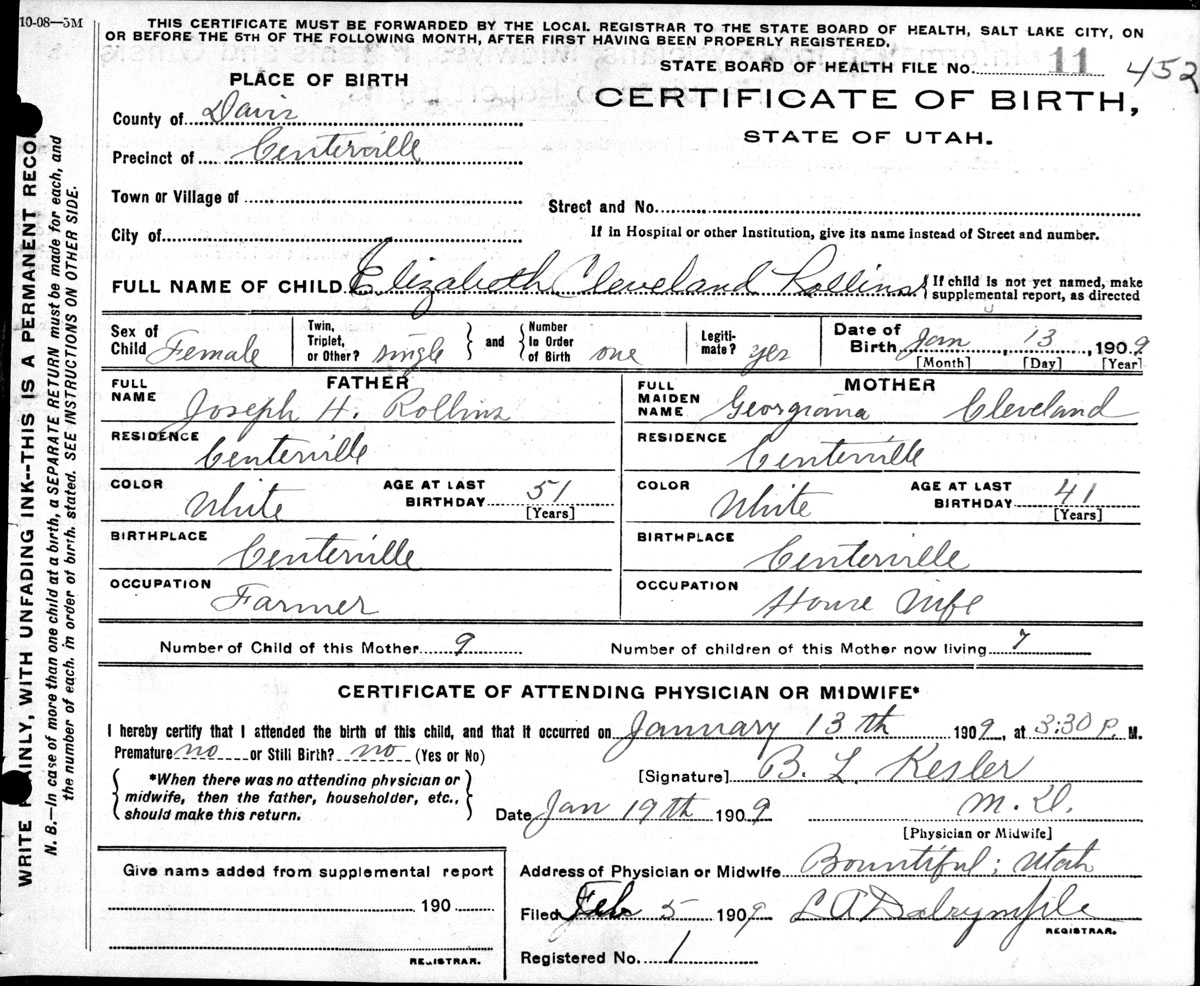 10-08—5M
THIS CERTIFICATE MUST BE FORWARDED BY THE LOCAL REGISTRAR TO THE STATE BOARD OF HEALTH, SALT LAKE CITY, ON
OR BEFORE THE 5TH OF THE FOLLOWING MONTH, AFTER FIRST HAVING BEEN PROPERLY REGISTERED.
STATE BOARD OF HEALTH FILE No. 11 452
PLACE OF BIRTH
CERTIFICATE OF BIRTH,
STATE OF UTAH.
County of Davis
Precinct of Centerville
Town or Village of
Street and No.
City of
If in Hospital or other Institution, give its name instead of Street and number.
FULL NAME OF CHILD Elizabeth Cleveland Rollins { If child is not yet named, make
supplemental report, as directed
Sex of Child Female
Twin, Triplet, or Other? single } and { Number In Order of Birth one
Legitimate? yes
Date of Birth Jan, 13, 1909
[Month] [Day] [Year]
FATHER
FULL NAME Joseph H. Rollins
RESIDENCE Centerville
COLOR White AGE AT LAST BIRTHDAY 51
[Years]
BIRTHPLACE Centerville
OCCUPATION Farmer
MOTHER
FULL MAIDEN NAME Georgiana Cleveland
RESIDENCE Centerville
COLOR White AGE AT LAST BIRTHDAY 41
[Years]
BIRTHPLACE Centerville
OCCUPATION House Wife
Number of Child of this Mother 9 Number of children of this Mother now living 7
CERTIFICATE OF ATTENDING PHYSICIAN OR MIDWIFE*
I hereby certify that I attended the birth of this child, and that it occurred on January 13th 1909, at 3:30 P. M.
Premature no or Still Birth? no (Yes or No)
{ *When there was no attending physician or
midwife, then the father, householder, etc.,
should make this return. }
[Signature] B. L. Kesler
Date Jan 19th 1909 M.D.
[Physician or Midwife]
Give name added from supplemental report
190
REGISTRAR.
Address of Physician or Midwife Bountiful; Utah
Filed Feb 5 1909 L A Dalrymple
REGISTRAR.
Registered No. 1
WRITE AINLY, WITH UNFADING INK--THIS IS A PERMANENT RECO
N. B.—In case of more than one child at a birth, a SEPARATE RETURN must be made for each, and
the number of each, in order of birth, stated. SEE INSTRUCTIONS ON OTHER SIDE.